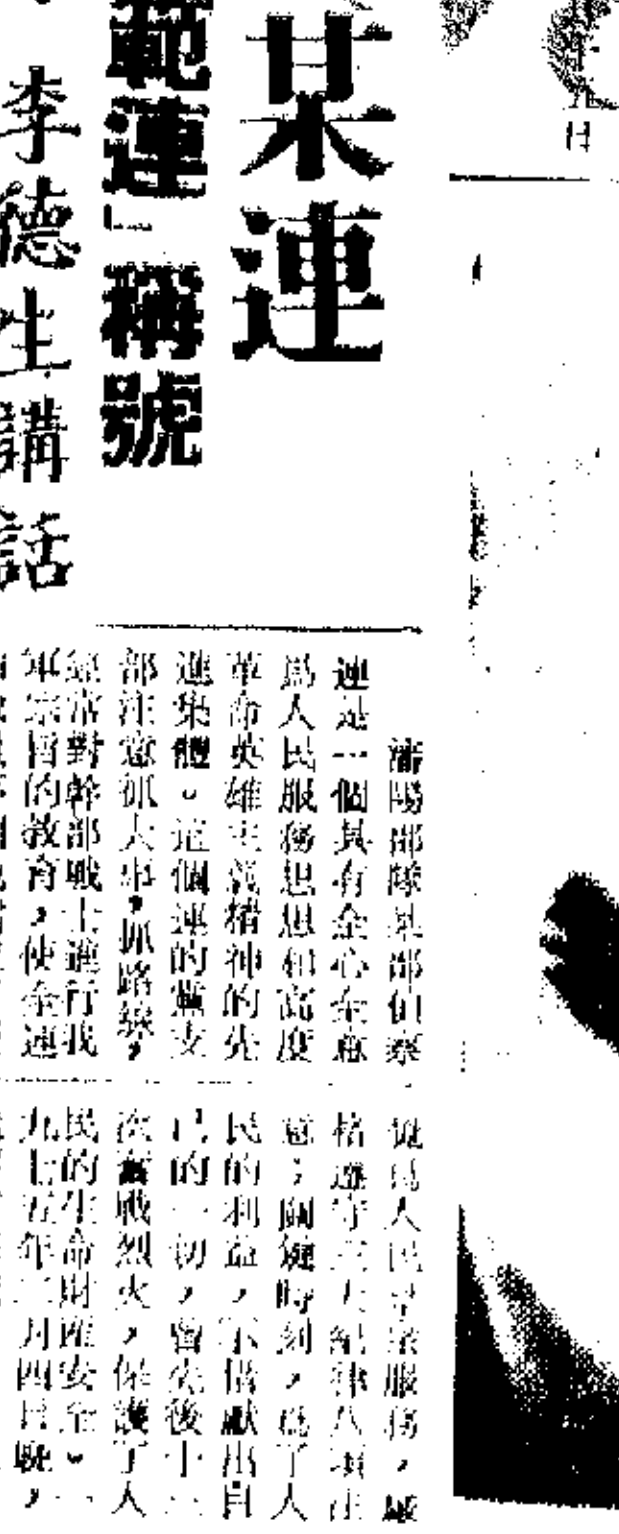 某連
範連」稱號
李德生講話
瀋陽部隊某部偵察
連是一個具有全心全意
爲人民服務思想和高度
革命英雄主義精神的先
進集體。這個連的黨支
部注意抓大事，抓路線，
經常對幹部戰士進行我
軍宗旨的教育，使全連
爲人民羣衆服務，嚴
格遵守三大紀律八項注
意；關鍵時刻，爲了人
民的利益，不惜獻出自
己的一切，曾先後十二
次奮戰烈火，保護了人
民的生命財產安全。一
九七五年二月四日晚，